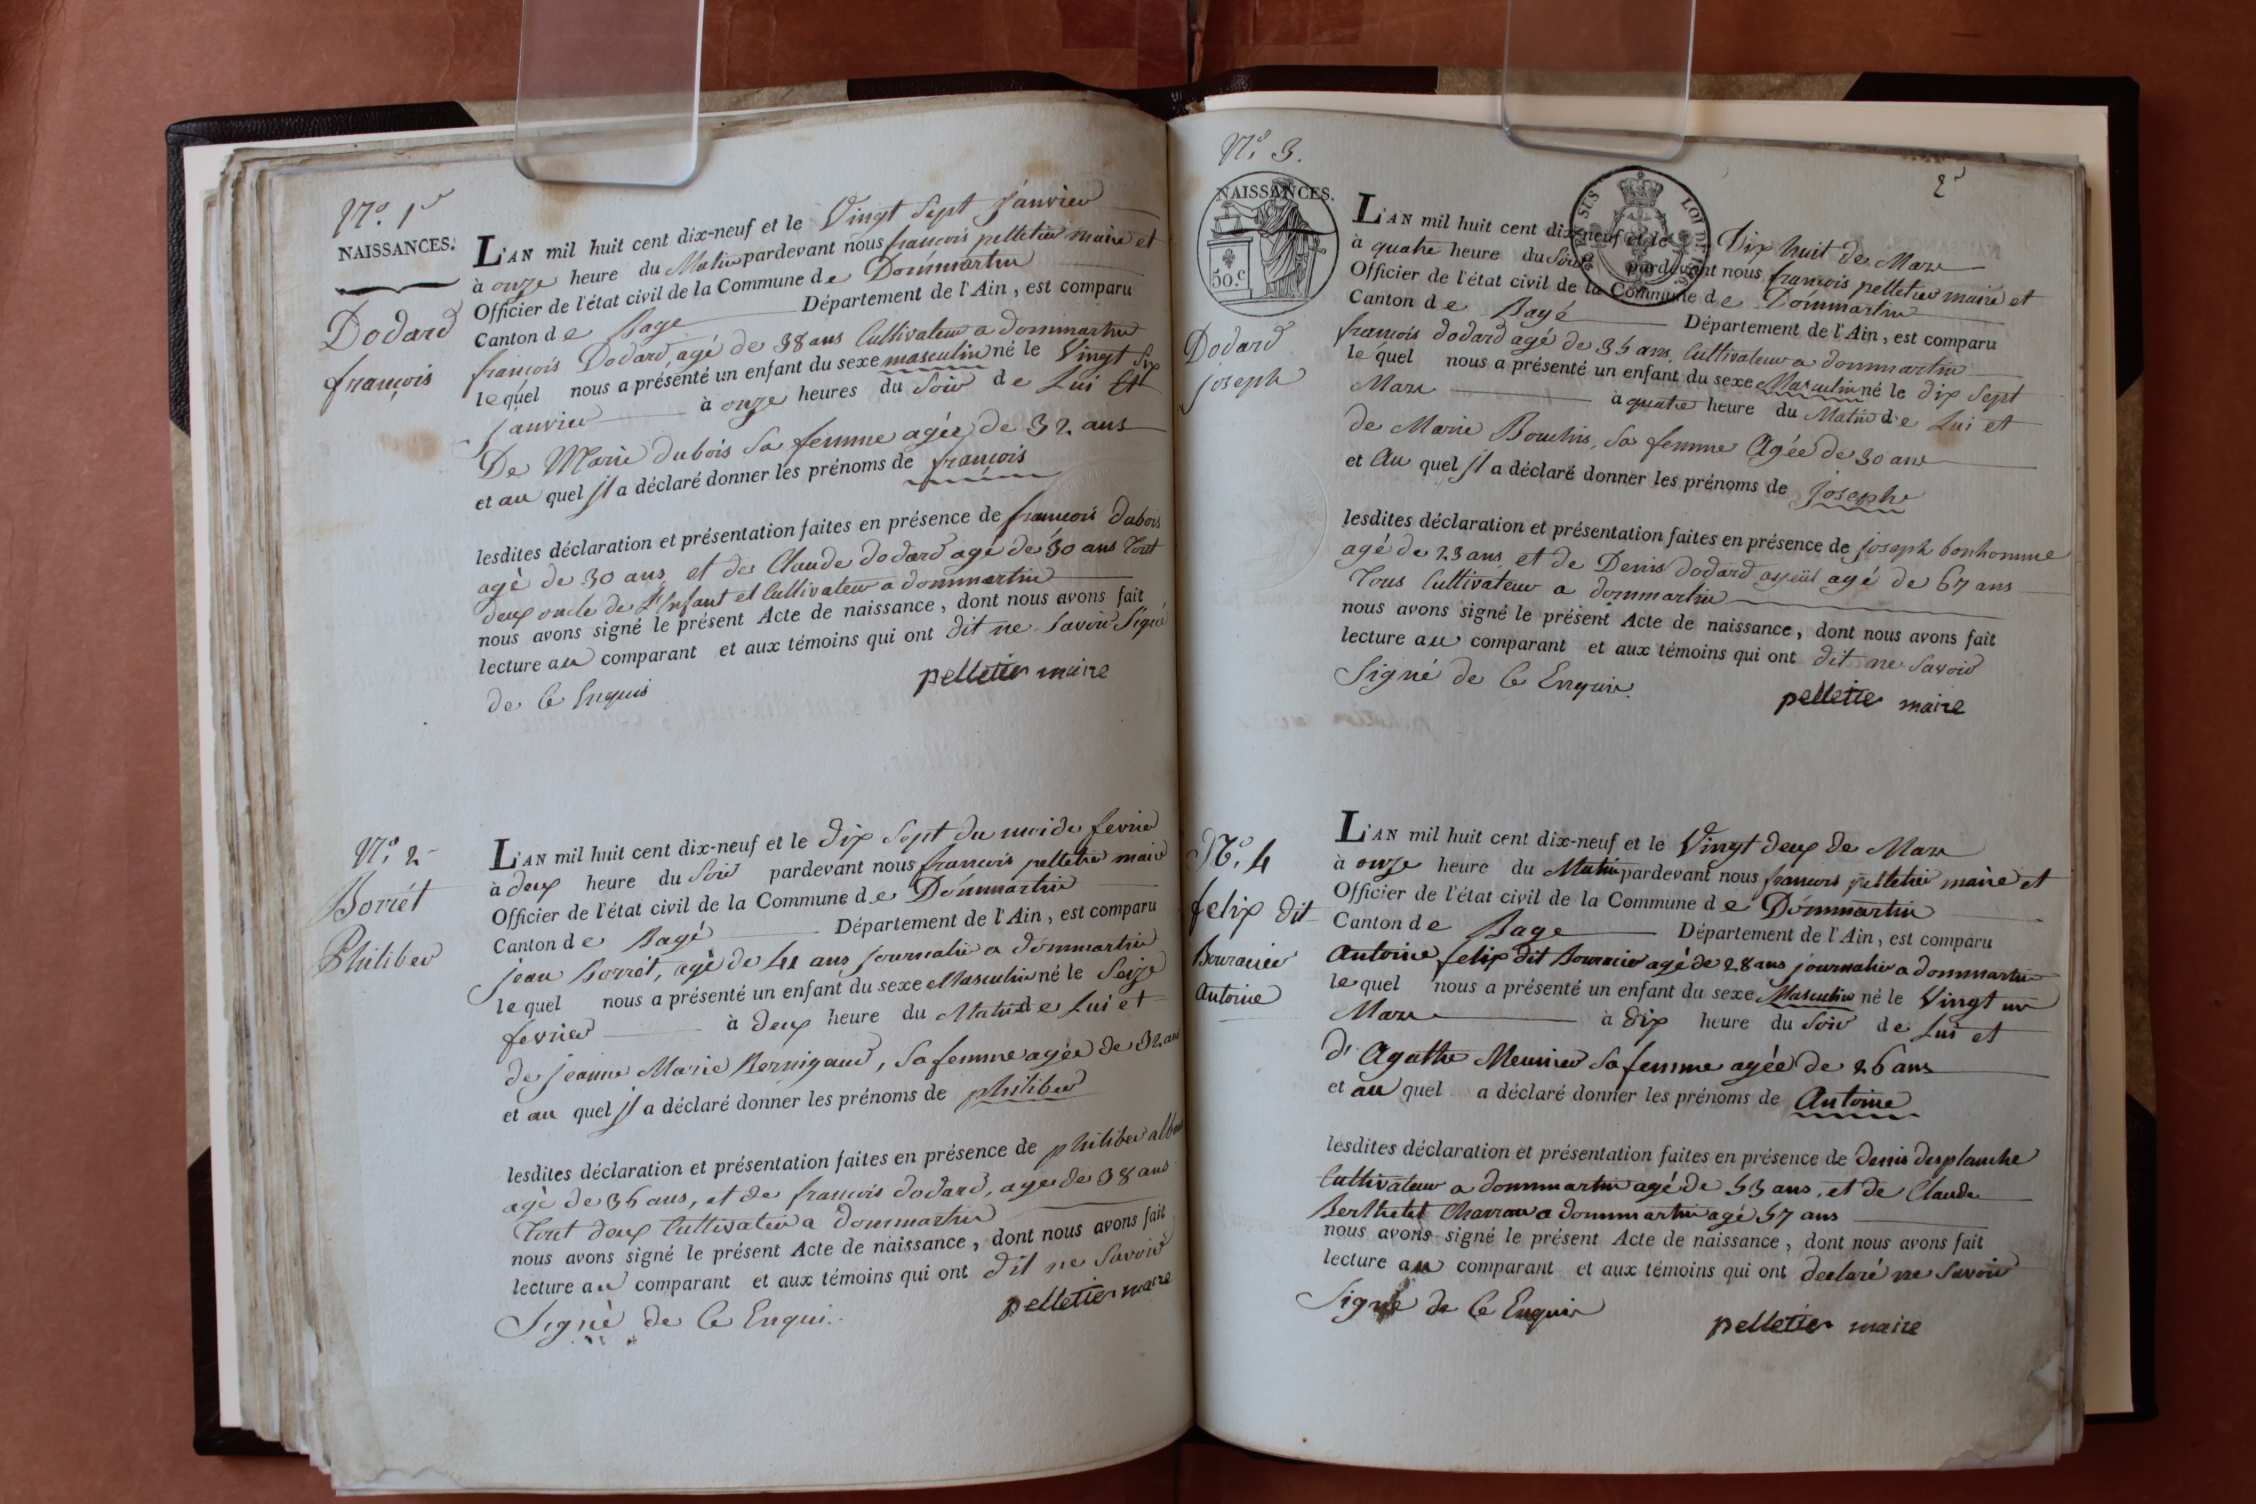 N.º 1er
NAISSANCES.
Dodard
françois
L'AN mil huit cent dix-neuf et le Vingt Sept Janvier
à onze heure du Matin pardevant nous françois pelletier maire et
Officier de l'état civil de la Commune de Dommartin
Canton de Bage Département de l'Ain, est comparu
françois Dodard, agé de 38 ans Cultivateur a dommartin
lequel nous a présenté un enfant du sexe masculin né le Vingt Six
janvier à onze heures du Soir de Lui Et
De Marie dubois Sa femme agée de 32 ans
et au quel Jl a déclaré donner les prénoms de françois
lesdites déclaration et présentation faites en présence de francois dubois
agé de 30 ans et de Claude dodard agé de 30 ans Tout
deux oncle de L'Enfant et Cultivateur a dommartin
nous avons signé le présent Acte de naissance, dont nous avons fait
lecture au comparant et aux témoins qui ont dit ne Savoir Signé
de Ce Enquis
pelletier maire
N.º 2
Borrét
Philiber
L'AN mil huit cent dix-neuf et le dix Sept du moi de fevrier
à deux heure du Soir pardevant nous francois pelletier maire
Officier de l'état civil de la Commune de Dommartin
Canton de Bagé Département de l'Ain, est comparu
jean Borrét, agé de 41 ans journalier a dommartin
lequel nous a présenté un enfant du sexe Masculin né le Seize
fevrier à deux heure du Matin de Lui et
de jeanne Marie Bernigaud, Sa femme agée de 32 ans
et au quel Jl a déclaré donner les prénoms de philiber
lesdites déclaration et présentation faites en présence de philiber
agé de 36 ans, et de francois dodard, agé de 38 ans
Tout deux Cultivateur a dommartin
nous avons signé le présent Acte de naissance, dont nous avons fait
lecture au comparant et aux témoins qui ont dit ne Savoir
Signé de Ce Enqui.
pelletier maire
N.º 3.
2e
NAISSANCES.
50.c
Dodard
joseph
L'AN mil huit cent dix-neuf et le Dix huit de Mars
à quatre heure du Soir pardevant nous françois pelletier maire et
Officier de l'état civil de la Commune de Dommartin
Canton de Bagé Département de l'Ain, est comparu
francois dodard agé de 35 ans, Cultivateur a dommartin
lequel nous a présenté un enfant du sexe Masculin né le dix Sept
Mars à quatre heure du Matin de Lui et
de Marie Bouchis, Sa femme Agée de 30 ans
et Au quel Jl a déclaré donner les prénoms de joseph
lesdites déclaration et présentation faites en présence de joseph bonhomme
agé de 23 ans et de Denis dodard ayeül agé de 67 ans
Tous Cultivateur a dommartin
nous avons signé le présent Acte de naissance, dont nous avons fait
lecture au comparant et aux témoins qui ont dit ne Savoir
Signé de Ce Enquis.
pelletier maire
N.º 4
felix dit
Bouracier
Antoine
L'AN mil huit cent dix-neuf et le Vingt deux de Mars
à onze heure du Matin pardevant nous francois pelletier maire et
Officier de l'état civil de la Commune de Dommartin
Canton de Bage Département de l'Ain, est comparu
Antoine felix dit Bouracier agé de 28 ans journalier a dommartin
lequel nous a présenté un enfant du sexe Masculin né le Vingt un
Mars à dix heure du Soir de Lui et
d' Agathe Meunier Sa femme agée de 26 ans
et au quel a déclaré donner les prénoms de Antoine
lesdites déclaration et présentation faites en présence de denis desplanche
Cultivateur a dommartin agé de 53 ans, et de Claude
Berthelet Charron a dommartin agé 57 ans
nous avons signé le présent Acte de naissance, dont nous avons fait
lecture au comparant et aux témoins qui ont declaré ne Savoir
Signé de Ce Enquis
pelletier maire